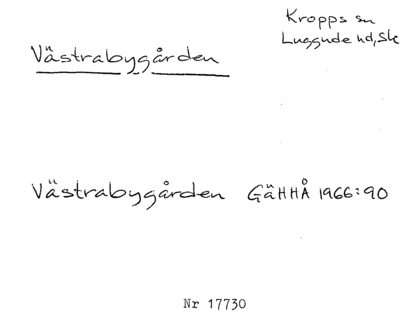 Kropps sn
Luggude hd, Sk
Västrabygården
Västrabygården GäHHÅ 1966:90
Nr 17730